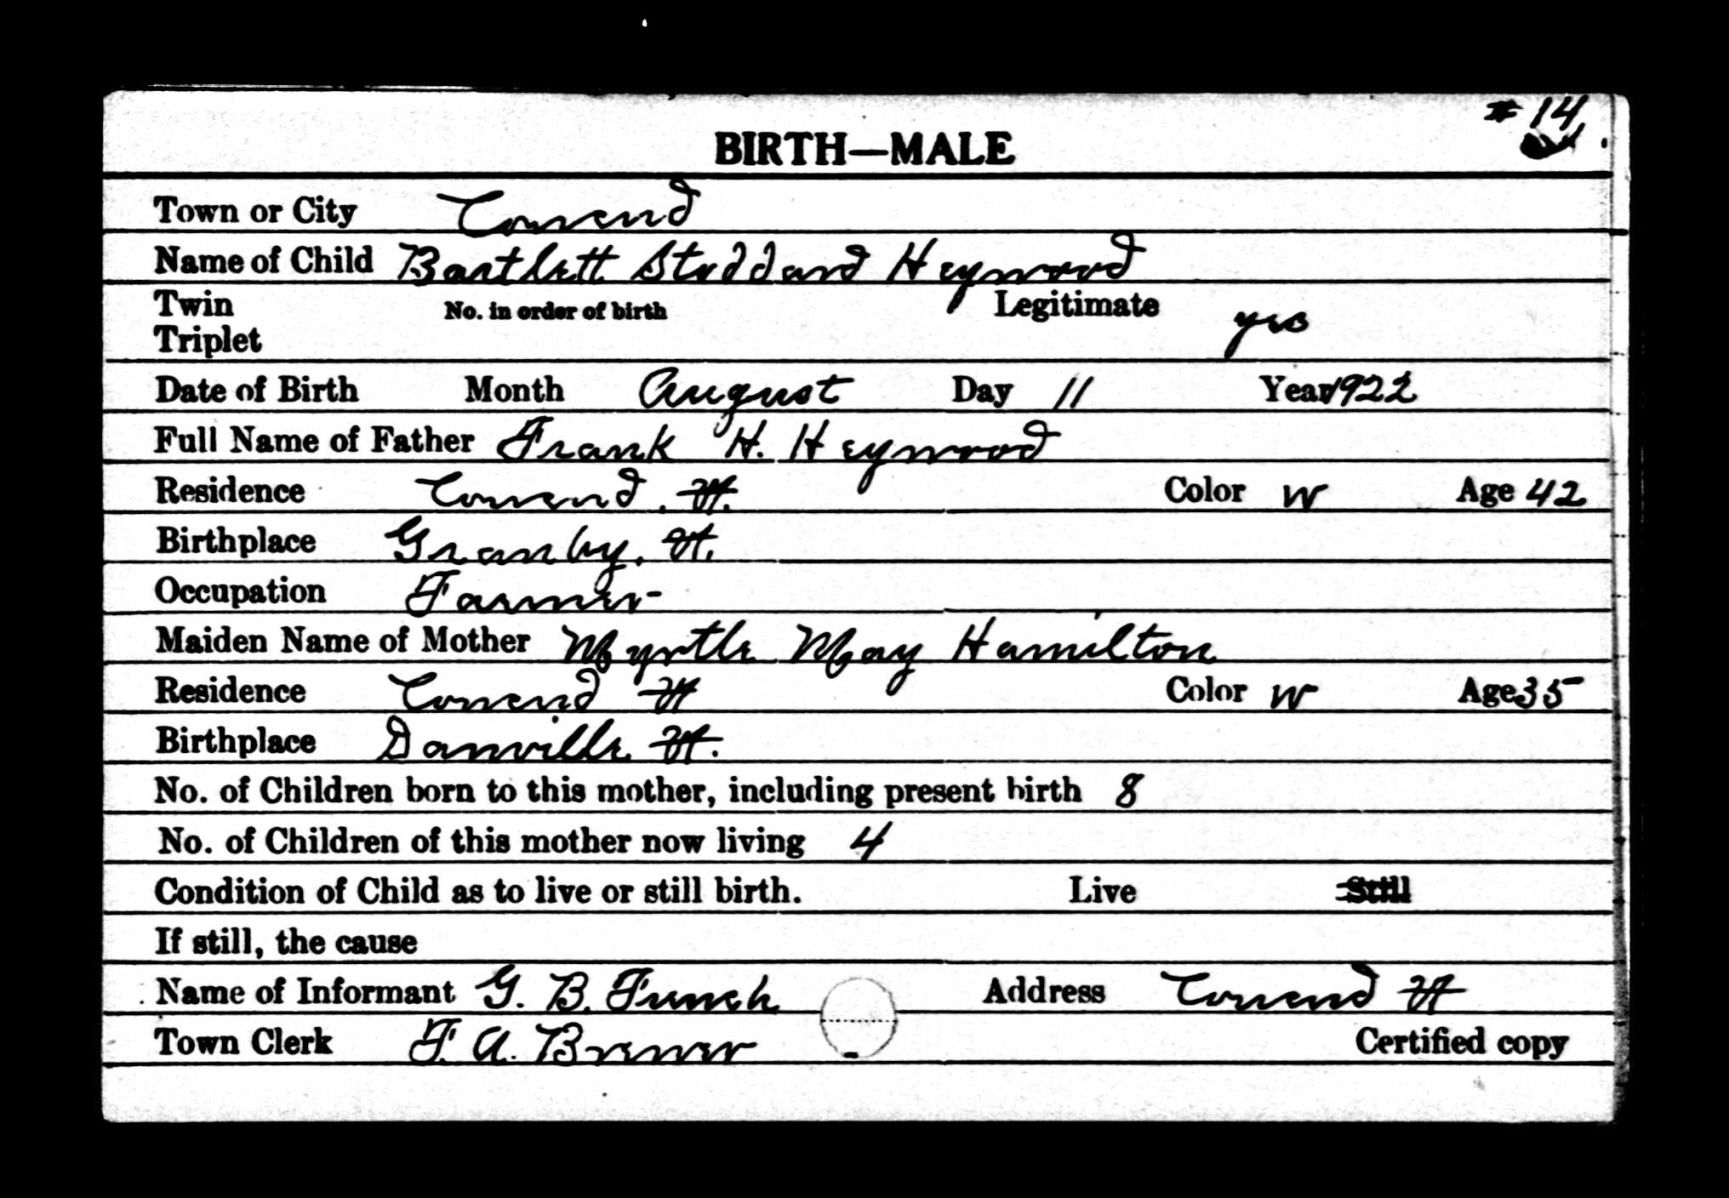 # 14
BIRTH—MALE
Town or City Concord
Name of Child Bartlett Stoddard Heywood
Twin No. in order of birth Legitimate yes
Triplet
Date of Birth Month August Day 11 Year 1922
Full Name of Father Frank H. Heywood
Residence Concord, Vt. Color W Age 42
Birthplace Granby, Vt.
Occupation Farmer
Maiden Name of Mother Myrtle May Hamilton
Residence Concord Vt Color W Age 35
Birthplace Danville Vt.
No. of Children born to this mother, including present birth 8
No. of Children of this mother now living 4
Condition of Child as to live or still birth. Live Still
If still, the cause
Name of Informant G. B. French Address Concord Vt
Town Clerk F. A. Brewer Certified copy